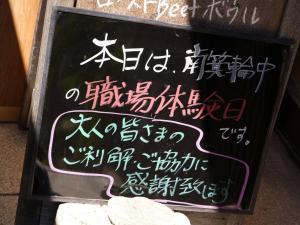 ローストBeefボウル
本日は、南箕輪中
の職場体験日
です。
大人の皆さまの
ご利解・ご協力に
感謝致します